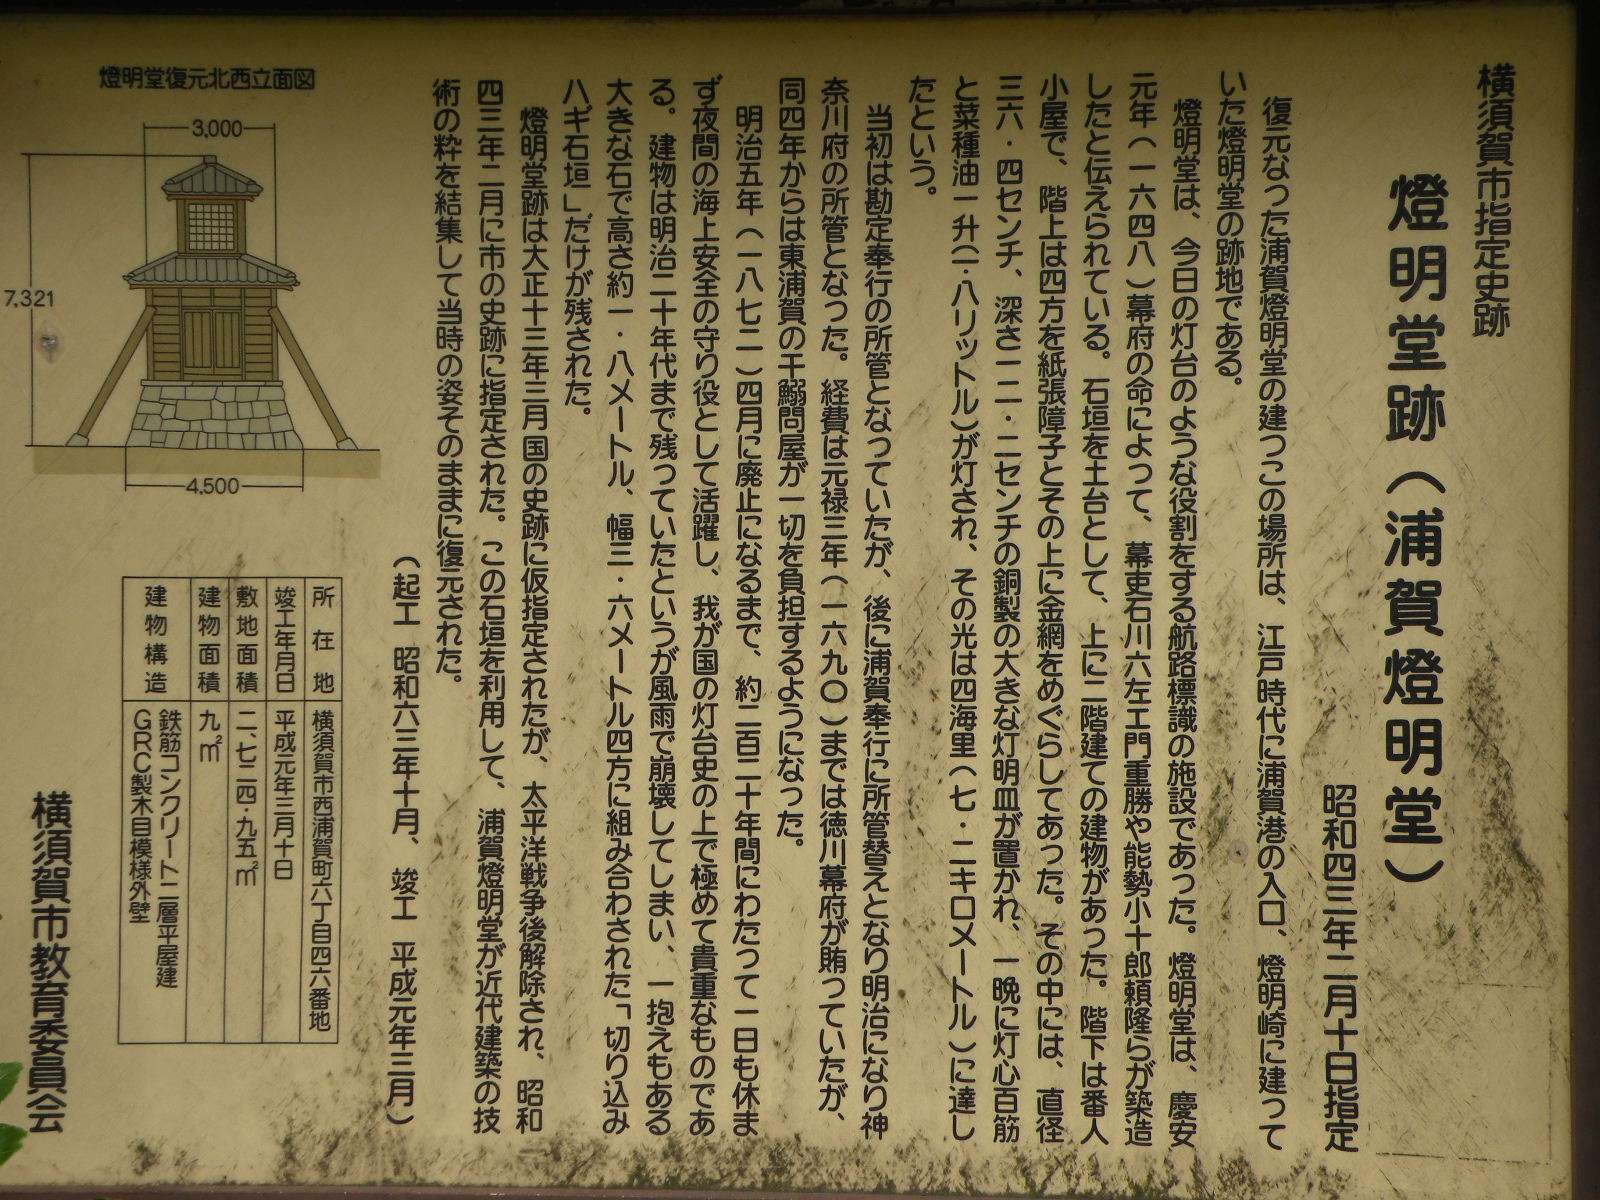 横須賀市指定史跡
燈明堂跡（浦賀燈明堂）
昭和四三年二月十日指定
復元なった浦賀燈明堂の建つこの場所は、江戸時代に浦賀港の入口、燈明崎に建って
いた燈明堂の跡地である。
燈明堂は、今日の灯台のような役割をする航路標識の施設であった。燈明堂は、慶安
元年（一六四八）幕府の命によって、幕吏石川六左エ門重勝や能勢小十郎頼隆らが築造
したと伝えられている。石垣を土台として、上に二階建ての建物があった。階下は番人
小屋で、階上は四方を紙張障子とその上に金網をめぐらしてあった。その中には、直径
三六・四センチ、深さ二一・二センチの銅製の大きな灯明皿が置かれ、一晩に灯心百筋
と菜種油一升（一・八リットル）が灯され、その光は四海里（七・二キロメートル）に達し
たという。
当初は勘定奉行の所管となっていたが、後に浦賀奉行に所管替えとなり明治になり神
奈川府の所管となった。経費は元禄三年（一六九〇）までは徳川幕府が賄っていたが、
同四年からは東浦賀の干鰯問屋が一切を負担するようになった。
明治五年（一八七二）四月に廃止になるまで、約二百二十年間にわたって一日も休ま
ず夜間の海上安全の守り役として活躍し、我が国の灯台史の上で極めて貴重なものであ
る。建物は明治二十年代まで残っていたというが風雨で崩壊してしまい、一抱えもある
大きな石で高さ約一・八メートル、幅三・六メートル四方に組み合わされた「切り込み
ハギ石垣」だけが残された。
燈明堂跡は大正十三年三月国の史跡に仮指定されたが、太平洋戦争後解除され、昭和
四三年二月に市の史跡に指定された。この石垣を利用して、浦賀燈明堂が近代建築の技
術の粋を結集して当時の姿そのままに復元された。
（起工 昭和六三年十月、竣工 平成元年三月）
燈明堂復元北西立面図
3,000
7,321
4,500
所在地 横須賀市西浦賀町六丁目四六番地
竣工年月日 平成元年三月十日
敷地面積 二、七二四・九五㎡
建物面積 九㎡
建物構造 鉄筋コンクリート二層平屋建
GRC製木目模様外壁
横須賀市教育委員会